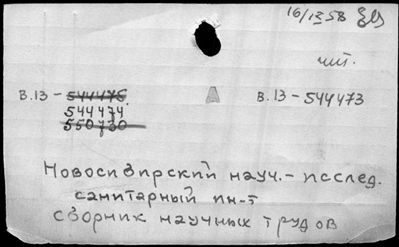 16/IX 58
чит.
В.13 - 544475. В.13 - 544473
544474
550730
Новосибирский науч.- исслед.
санитарный ин-т
сборник научных трудов